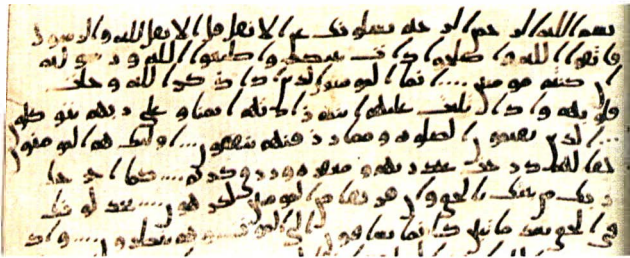 بسم الله الرحمن الرحيم يسلونك عن الانفل قل الانفل لله والرسول
فاتقوا الله واصلحوا ذات بينكم واطيعوا الله ورسوله
ان كنتم مومنين ... انما المومنون الذين اذا ذكر الله وجلت
قلوبهم واذا تليت عليهم ايته زادتهم ايمنا وعلى ربهم يتوكلو
ن ... الذين يقيمون الصلوة ومما رزقنهم ينفقون ... اوليك هم المومنون
حقا لهم درجت عند ربهم ومغفرة ورزق كريم ... كما اخرجك
ربك من بيتك بالحق وان فريقا من المومنين لكرهون ... يجدلونك
في الحق بعد ما تبين كانما يساقون الى الموت وهم ينظرون ... واذ